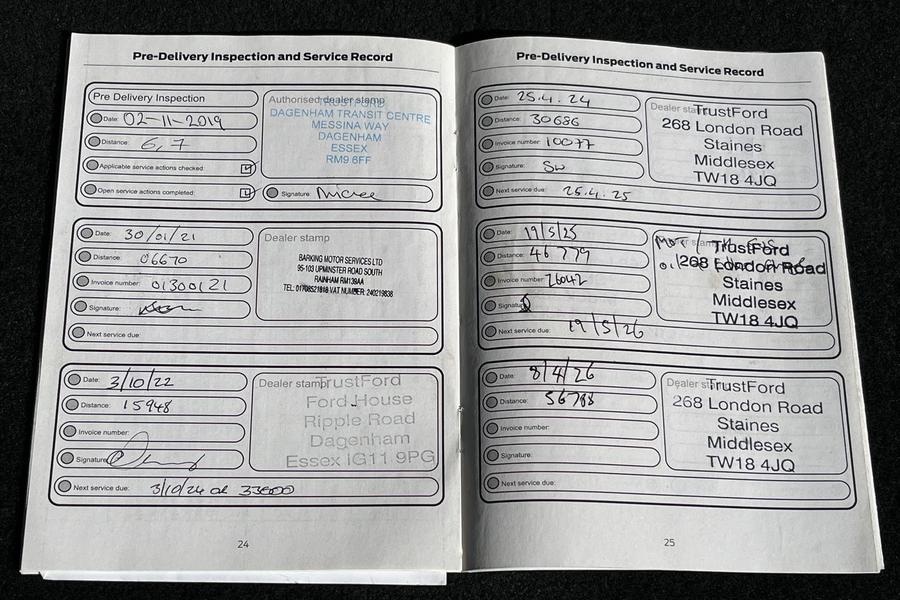 Pre-Delivery Inspection and Service Record
Pre Delivery Inspection
Date: 02-11-2019
Distance: 6,7
Applicable service actions checked:
Open service actions completed:
Authorised dealer stamp
TRUSTFORD
DAGENHAM TRANSIT CENTRE
MESSINA WAY
DAGENHAM
ESSEX
RM9 6FF
Signature:
Date: 30/01/21
Distance: 06670
Invoice number: 01300121
Signature:
Next service due:
Dealer stamp
BARKING MOTOR SERVICES LTD
95-103 UPMINSTER ROAD SOUTH
RAINHAM RM139AA
TEL: 01708521818 VAT NUMBER: 240219838
Date: 3/10/22
Distance: 15948
Invoice number:
Signature:
Next service due: 3/10/24 or 33600
Dealer stamp
TrustFord
Ford House
Ripple Road
Dagenham
Essex IG11 9PG
24
Pre-Delivery Inspection and Service Record
Date: 25.4.24
Distance: 30686
Invoice number: 10077
Signature: SW
Next service due: 25.4.25
Dealer stamp
TrustFord
268 London Road
Staines
Middlesex
TW18 4JQ
Date: 19/5/25
Distance: 46779
Invoice number: 26042
Signature:
Next service due: 19/5/26
Dealer stamp
TrustFord
268 London Road
Staines
Middlesex
TW18 4JQ
Date: 8/4/26
Distance: 56788
Invoice number:
Signature:
Next service due:
Dealer stamp
TrustFord
268 London Road
Staines
Middlesex
TW18 4JQ
25